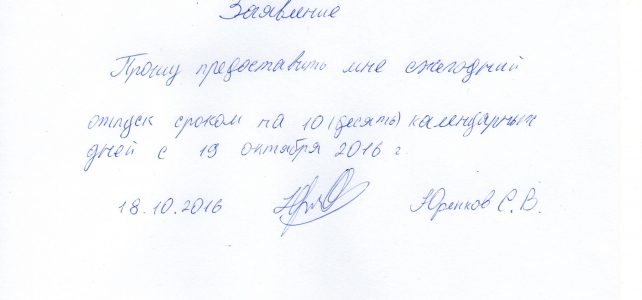 Заявление
Прошу предоставить мне ежегодний
отпуск сроком на 10 (десять) календарных
дней с 19 октября 2016 г
18.10.2016 Юренков С.В.